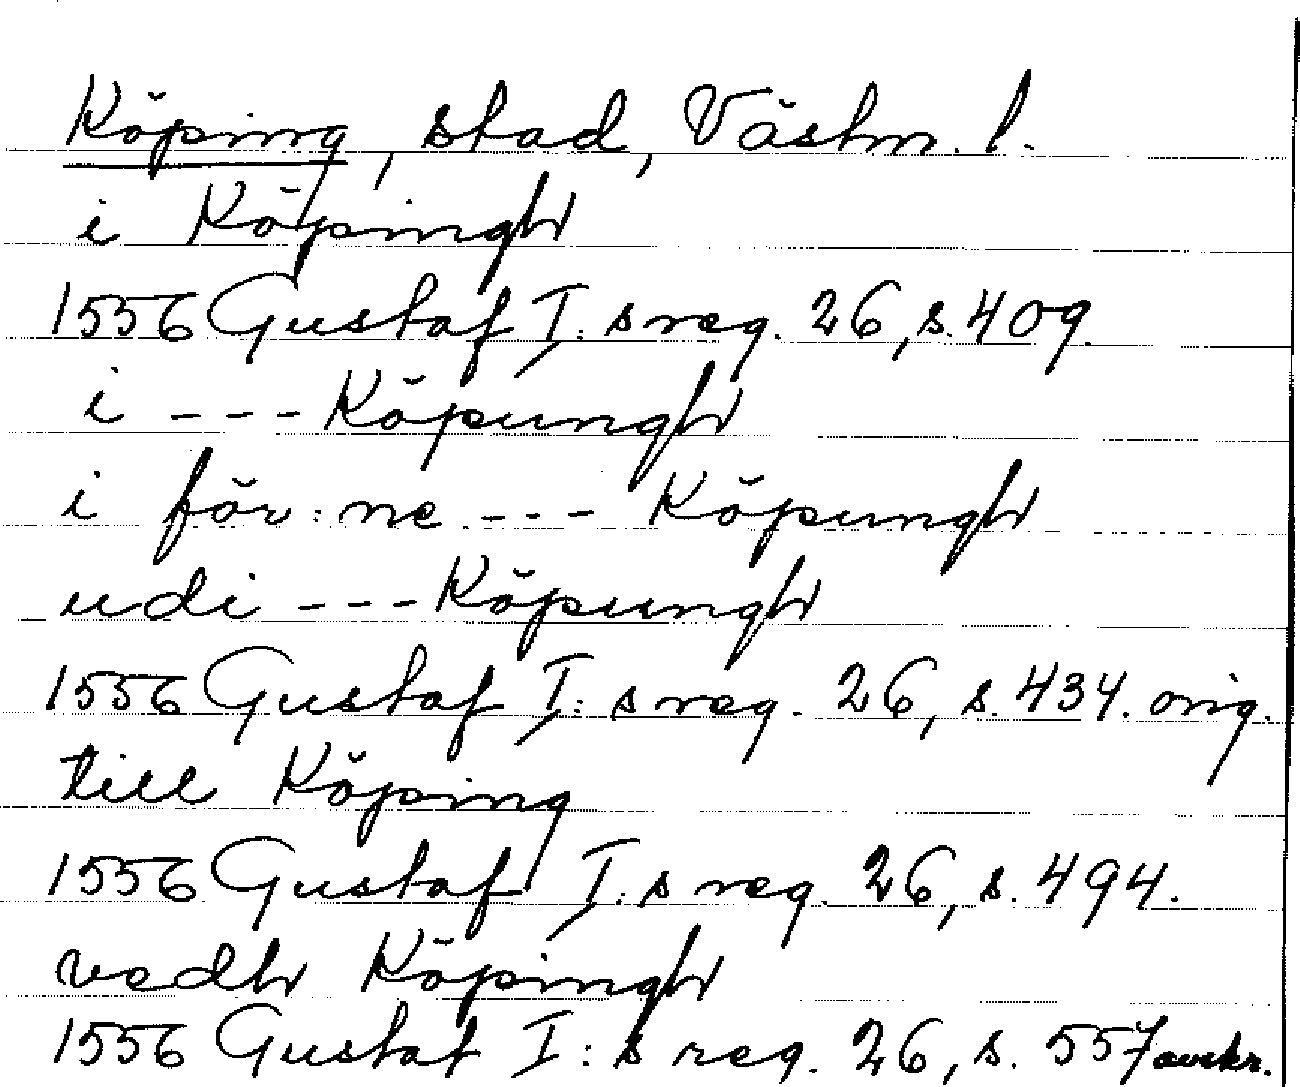 Köping, stad, Västm. l.
i Köpingh
1556 Gustaf I:s reg. 26, s. 409.
i --- Köpungh
i för:ne --- Köpungh
udi --- Köpungh
1556 Gustaf I:s reg. 26, s. 434. orig.
till Köping
1556 Gustaf I:s reg. 26, s. 494.
vedh Köpingh
1556 Gustaf I:s reg. 26, s. 557 avskr.